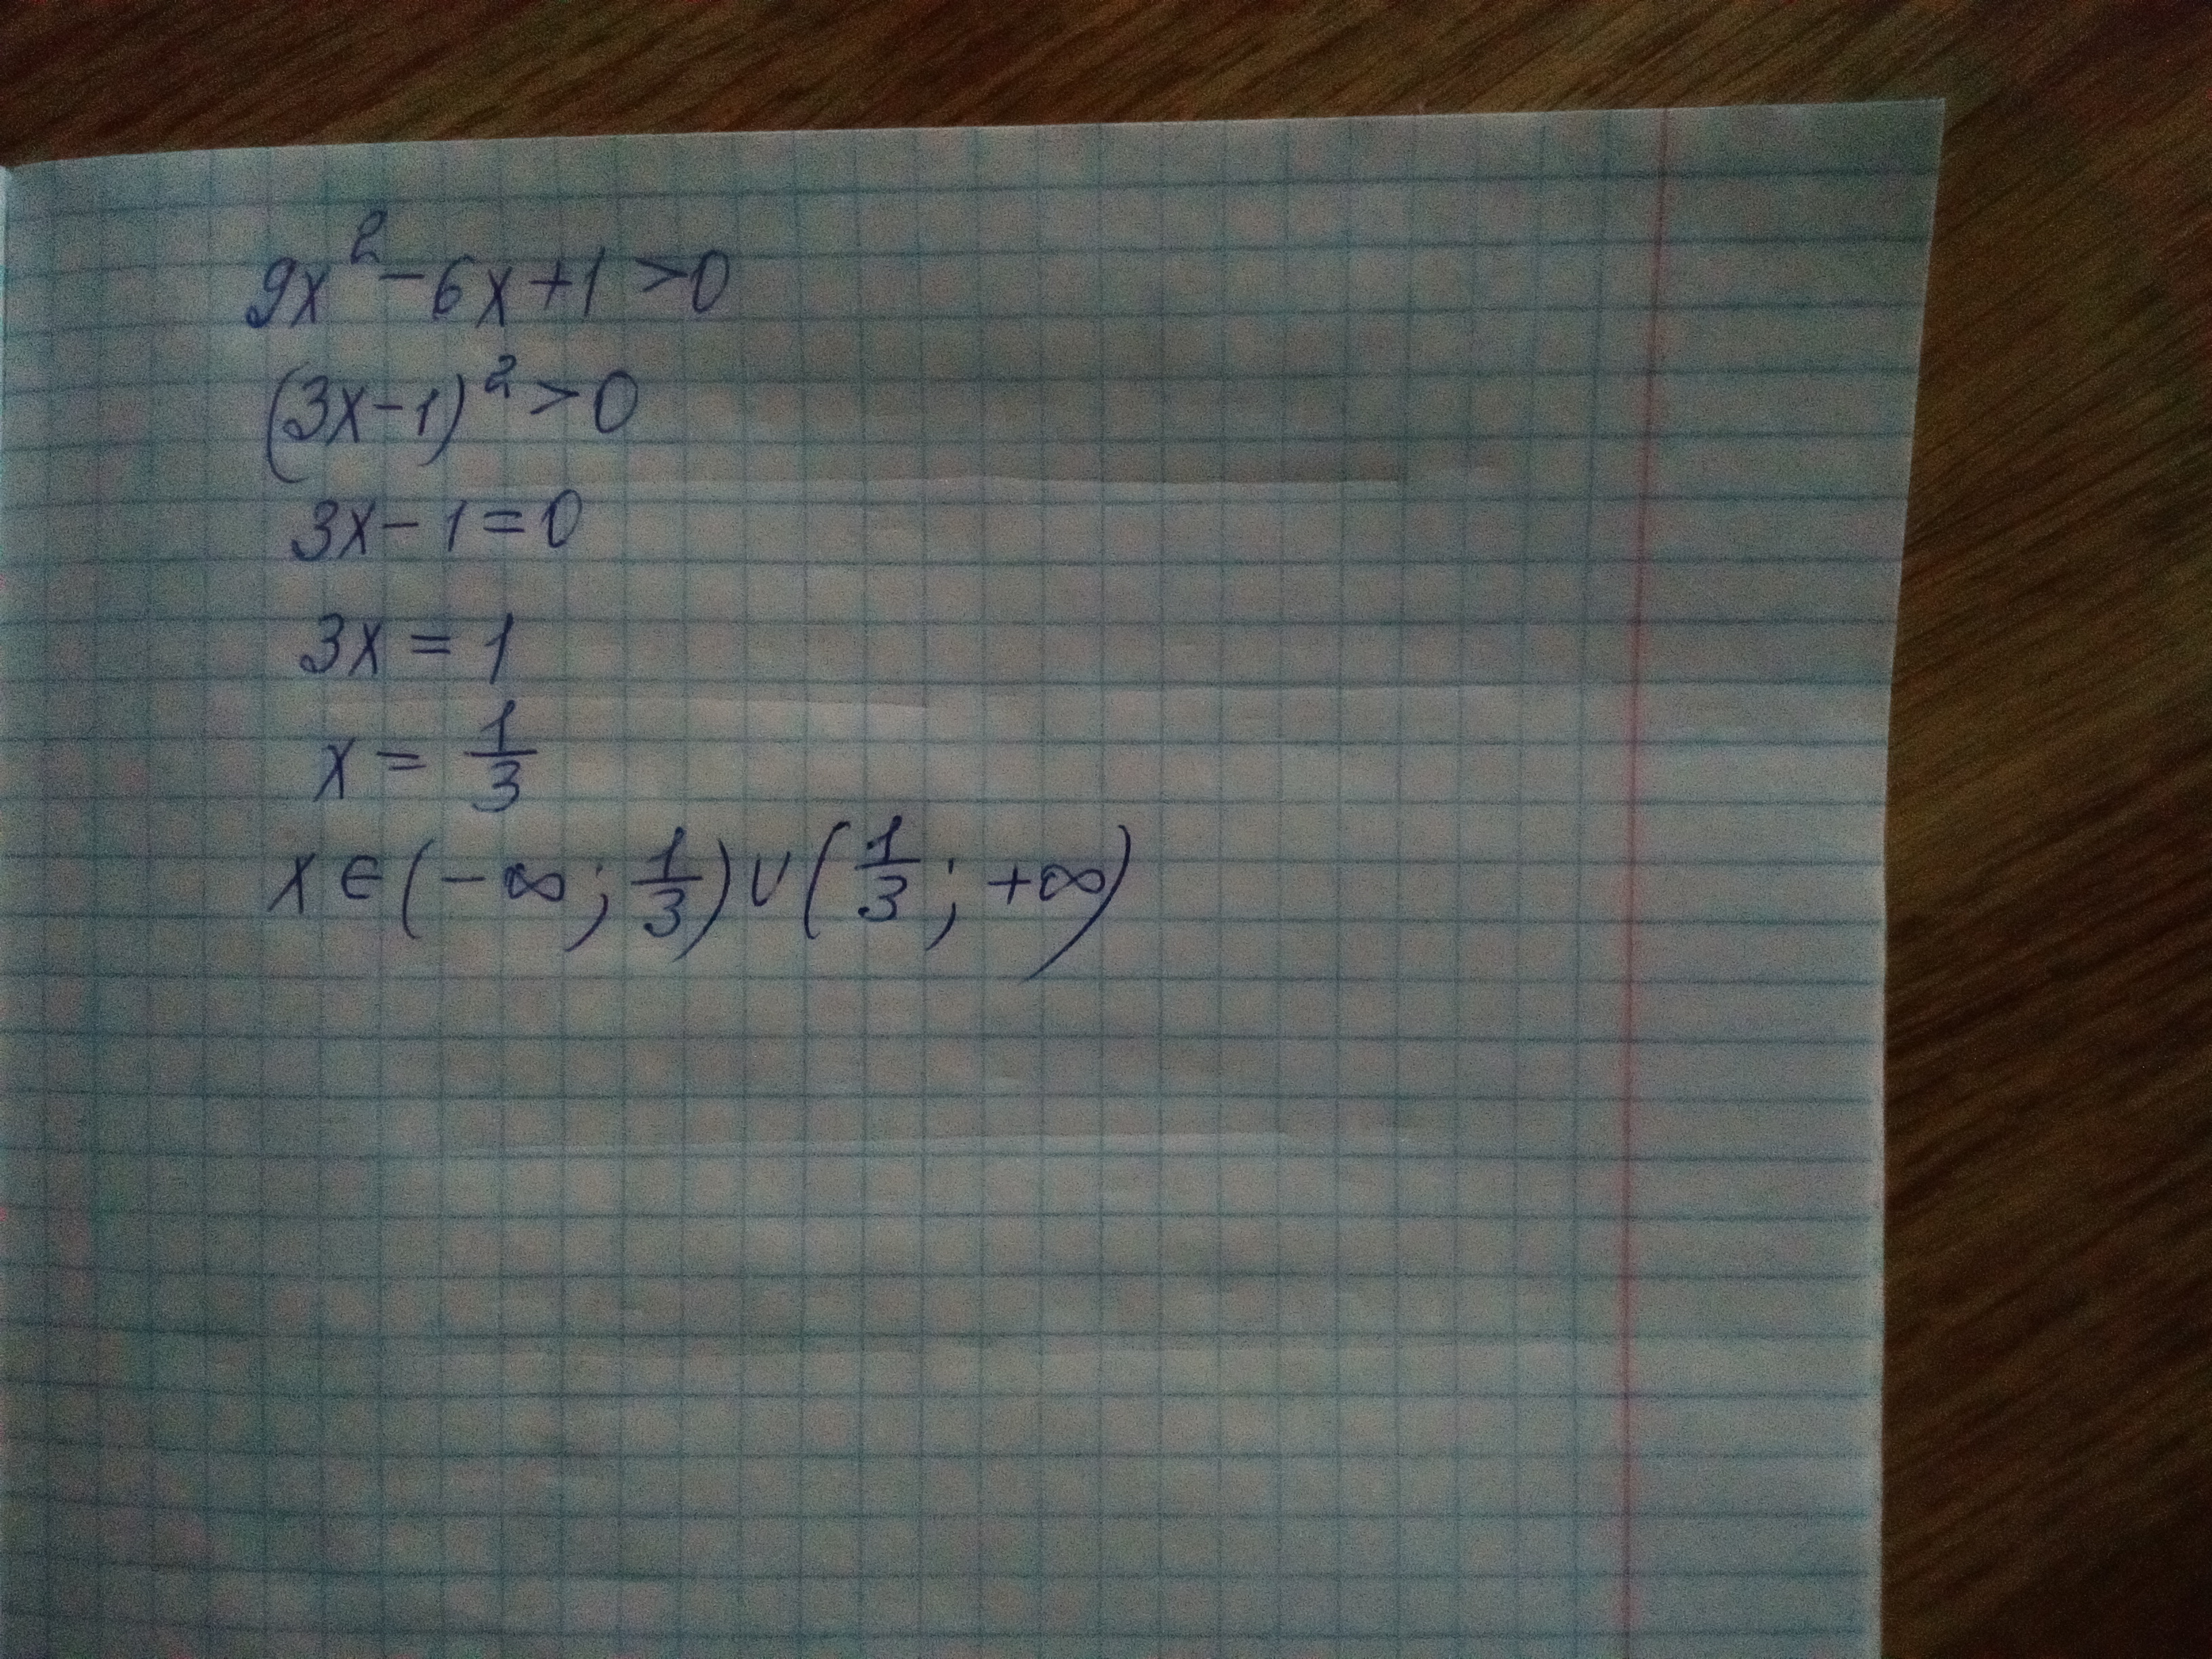 9x² - 6x + 1 > 0
(3x - 1)² > 0
3x - 1 = 0
3x = 1
x = 1/3
x ∈ (-∞; 1/3) ∪ (1/3; +∞)